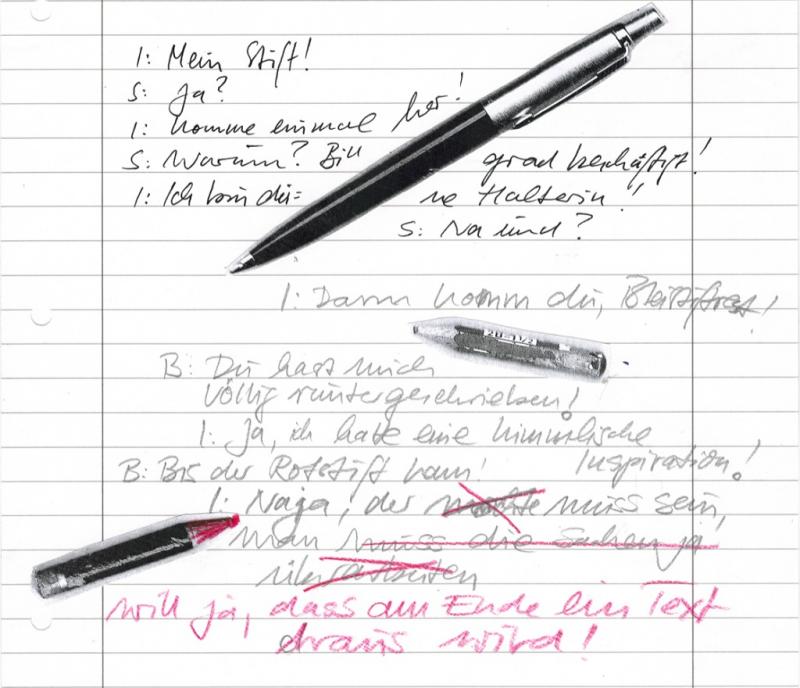 I: Mein Stift!
S: Ja?
I: Komme einmal her!
S: Warum? Bin grad beschäftigt!
I: Ich bin dei= ne Halterin!
S: Na und?
I: Dann komm du, Bleistiftrest!
B: Du hast mich
völlig runtergeschrieben!
I: Ja, ich hatte eine himmlische
Inspiration!
B: Bis der Rotstift kam!
I: Naja, der muss sein,
man muss die Sachen ja
überarbeiten
will ja, dass am Ende ein Text
draus wird!